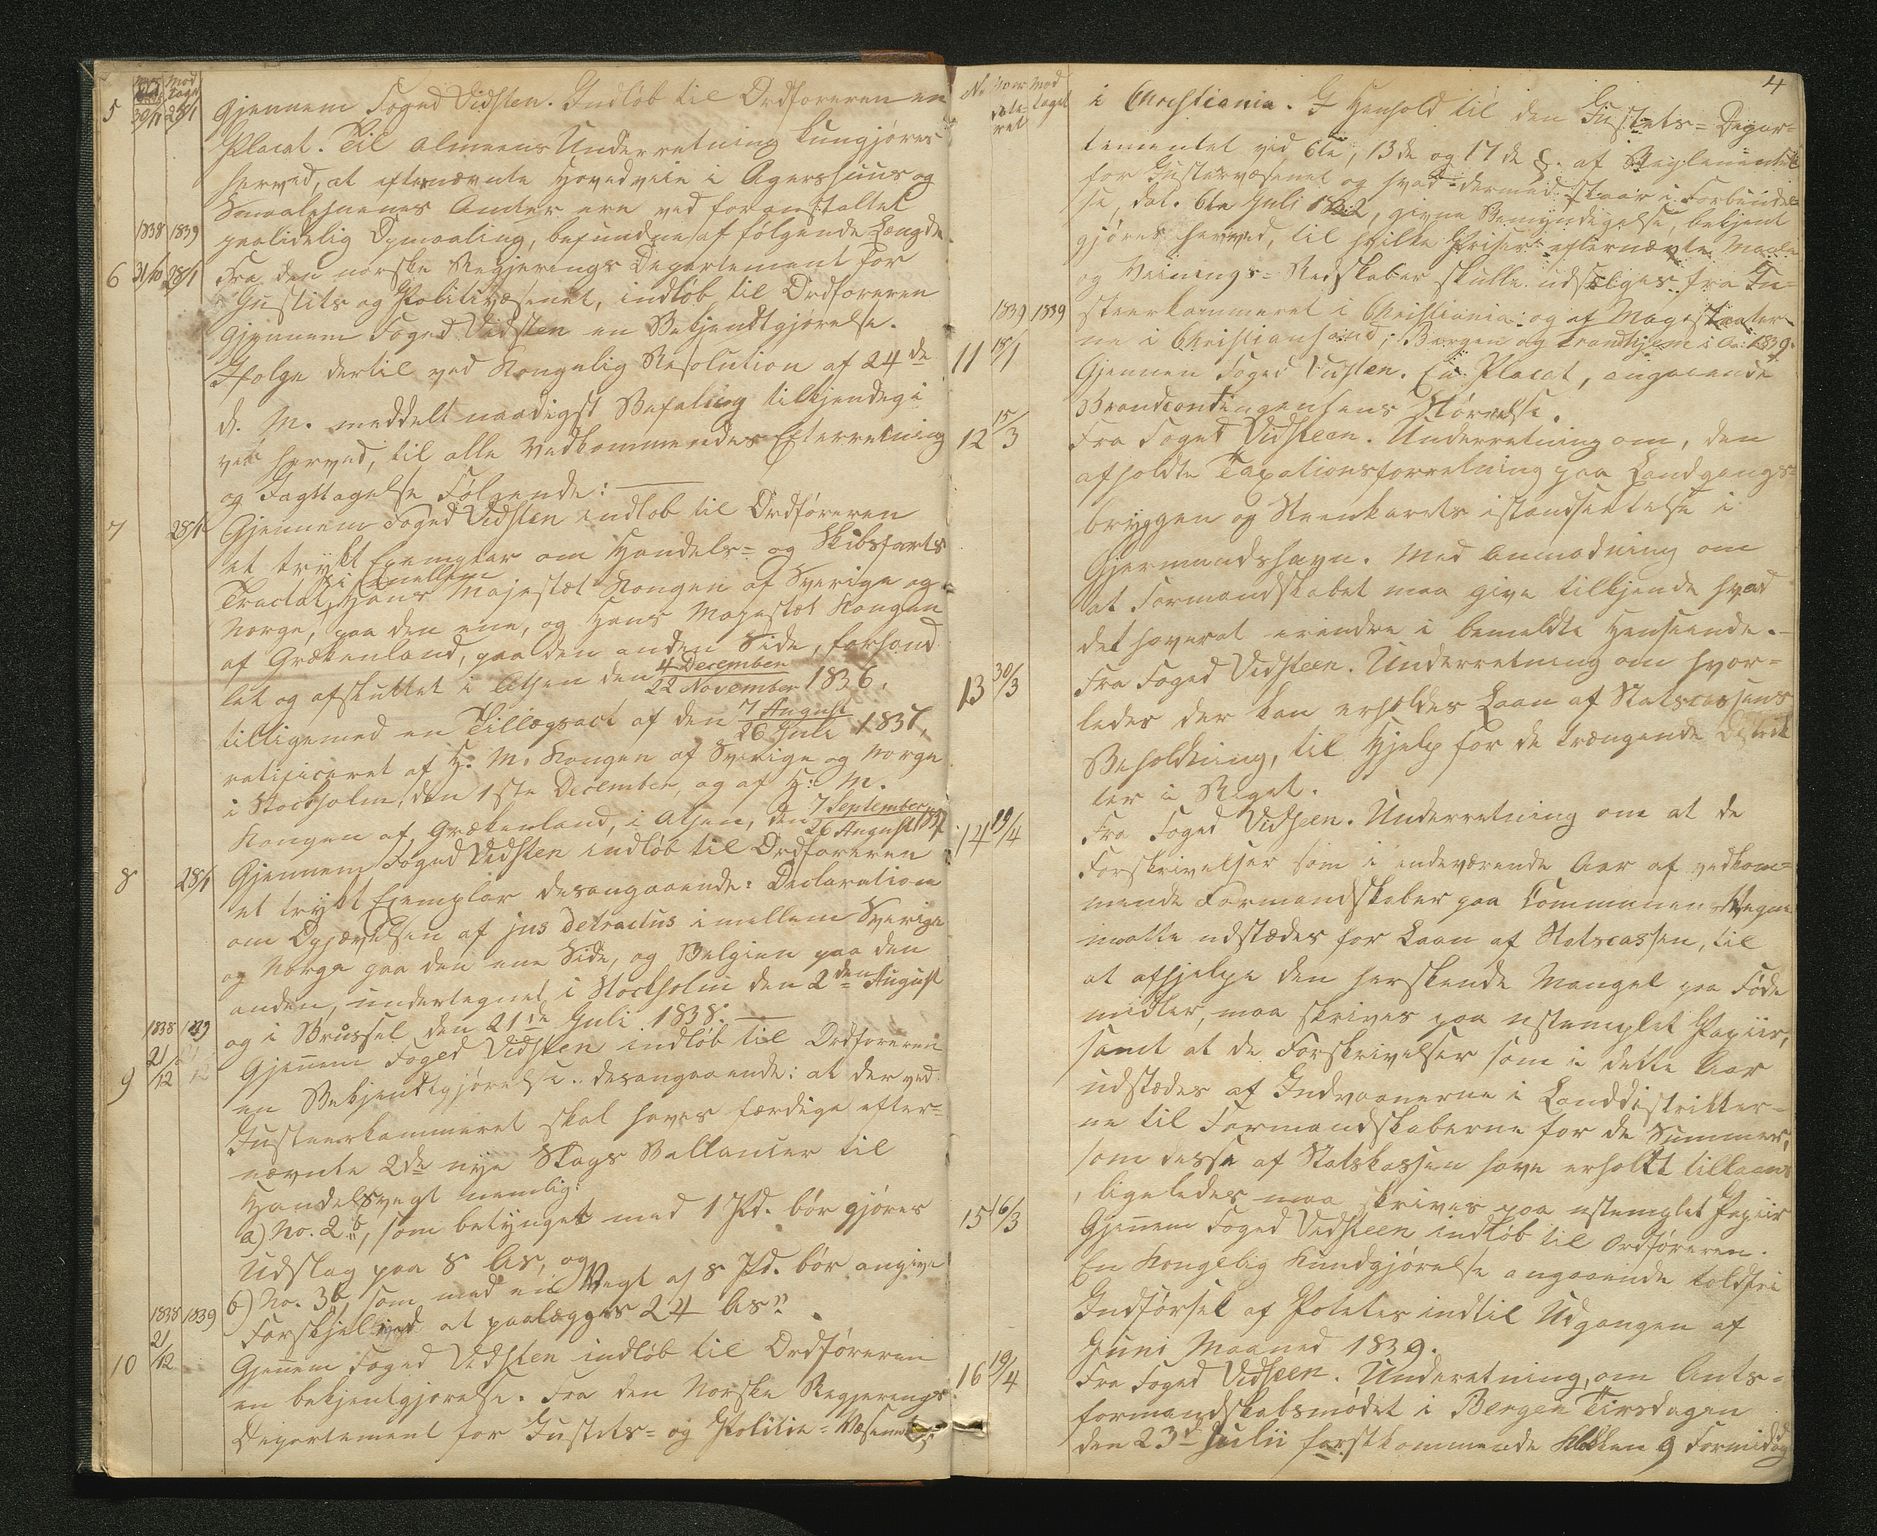 5 30/11 28/1 Gjennem Foged Vidsten. Indløb til Ordføreren en
Placat. Til almeens Underretning kungjøres
herved, at efternævnte Hovedveie i Agershuus og
Smaalehnenes Amter ere ved foranstaltet
1838 1839 paalidelig Opmaaling, befundne af følgende Længde.
6 31/10 28/1 Fra den norske Regjerings Departement for
Justits og Politivæsenet, indløb til Ordføreren
Gjennem Foged Vidsten en Bekjendtgjørelse.
Ifølge dertil ved Kongelig Resolution af 24de
d. M. meddelt naadigst Befaling tilkjendegi
ves herved, til alle Vedkommendes Efterretning
og Iagttagelse Følgende:
7 28/1 Gjennem Foged Vidsten indløb til Ordføreren
et trykt Exemplar om Handels= og Skibsfarts
Tractat, imellem Hans Majestæt Kongen af Sverige og
Norge, paa den ene, og Hans Majestæt Kongen
af Grækenland, paa den anden Side, forhand
let og afsluttet i Athen den 4 December / 22 November 1836,
tilligemed en Tillægsact af den 7 August / 26 Juli 1837,
ratificeret af H. M. Kongen af Sverige og Norge
i Stockholm, den 1ste December, og af H. M.
Kongen af Grækenland, i Athen, den 7 September / 26 August 1837
8 28/1 Gjennem Foged Vidsten indløb til Ordføreren
et trykt Exemplar desangaaende: Declaration
om Ophævelsen af jus detractus imellem Sverige
og Norge paa den ene Side, og Belgien paa den
anden, undertegnet i Stockholm den 2den August
og i Brüssel den 21de Juli 1838.
1838 1839
9 21/12 Gjennem Foged Vidsten indløb til Ordføreren
en Bekjendtgjørelse.. desangaaende: at der ved
Justeerkammeret skal haves færdige efter=
nævnte 2de nye Slags Ballancer til
Handelsvegt nemlig:
a) No. 2b, som betynget med 1 Pd. bør gjøres
Udslag paa 8 As, og
b) No. 3b som med en Vegt af 8 Pd. bør angive
1838 1839 Forskjel ved at paalægges 24 As"
10 21/12 Gjennem Foged Vidsten indløb til Ordføreren
en bekjentgjørelse. Fra den Norske Regjerings
Departement for Justits= og Politie=Væsenet
4
No Daterer Modtaget
i Christiania. I Henhold til den Justits=Depar=
tementet ved 6te, 13de og 17de §. af Reglementet
for Justervæsenet og hvad dermed staaer i Forbindel
se, dat. 6te Juli, givne Bemyndigelse, bekjent
gjøres herved, til hvilke Priser efternævnte Maale
og Veinings=Redskaber skulle udsælges fra Ju=
1839 1839 steerkammeret i Christiania og af Magistrater
ne i Christiansand, Bergen og Trondhjem i Aar 1839.
11 18/1 Gjennem Foged Vidsten. En Placat, angaaende
Brandcontingensens Størrelse.
12 15/3 Fra Foged Vidsteen. Underretning om, den
afholdte Taxationsforretning paa Landgangs=
bryggen og Steenkarets istandsættelse i
Gjermundshavn. Med Anmodning om
at Formandskabet maa give tilkjende hvad
det haver at erindre i bemeldte Henseende.
13 30/3 Fra Foged Vidsteen. Underretning om hvor=
ledes der kan erholdes Laan af Statscassens
Beholdning, til Hjelp for de trængende Distrik
ter i Riget.
14 19/4 Fra Foged Vidsteen. Underretning om at de
Forskrivelser som i indeværende Aar af vedkom=
mende Formandskaber paa Communens Vegne
maatte udstædes for Laan af Statscassen, til
at afhjelpe den herskende Mangel paa Føde
midler, maa skrives paa ustemplet Papiir,
samt at de Forskrivelser som i dette Aar
udstædes af Indvaanerne i Landdistrikter=
ne til Formandskaberne for de Summer,
som disse af Statskassen have erholdt tillaans
, ligeledes maa skrives paa ustemplet Papiir
15 16/3 Gjennem Foged Vidsteen indløb til Ordføreren.
En Kongelig Kundgjørelse angaaende toldfri
Indførsel af Poteter indtil Udgangen af
Juni Maaned 1839.
16 19/4 Fra Foged Vidsteen. Underretning, om Amts=
formandskabsmødet i Bergen Tirsdagen
den 23de Julii førstkommende Klokken 9 Formidag